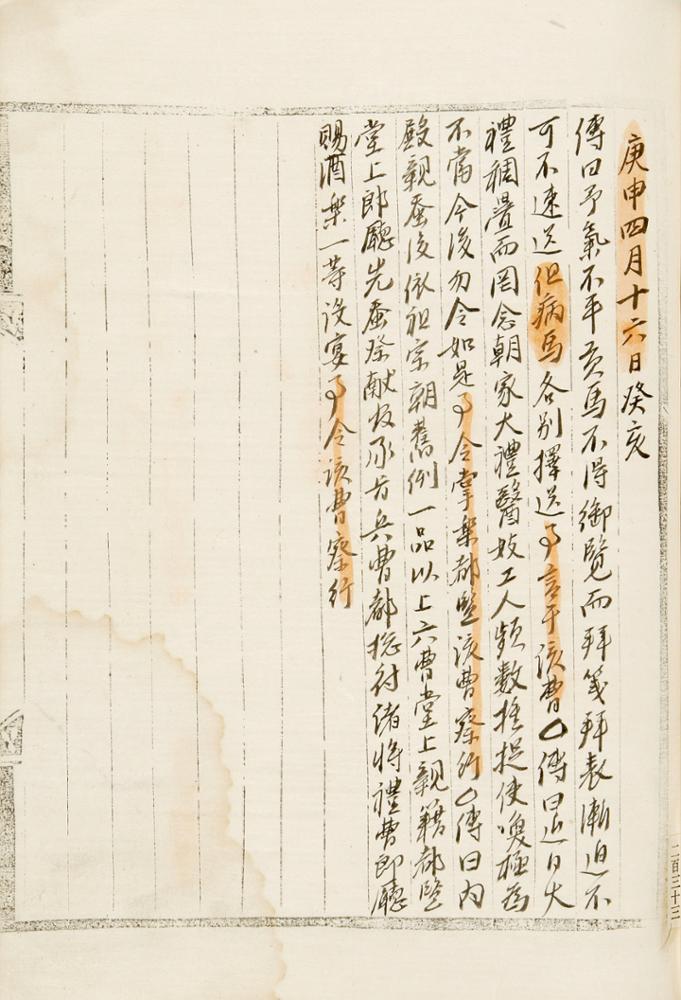 庚申四月十六日癸亥
傳曰予氣不平貢馬不得御覽而拜箋拜表漸迫不
可不速送但病馬各別擇送事言于該曹△傳曰近日大
禮稠疊而罔念朝家大禮醫妓工人頻數推捉使喚極為
不當今後勿令如是事令掌樂都監該曹察行△傳曰內
殿親蚕後依祖宗朝舊例一品以上六曹堂上親籍都監
堂上郎廳先蚕祭獻官承旨兵曹都摠府諸將禮曹郎廳
賜酒樂一等設宴事令該曹察行
二百三十三